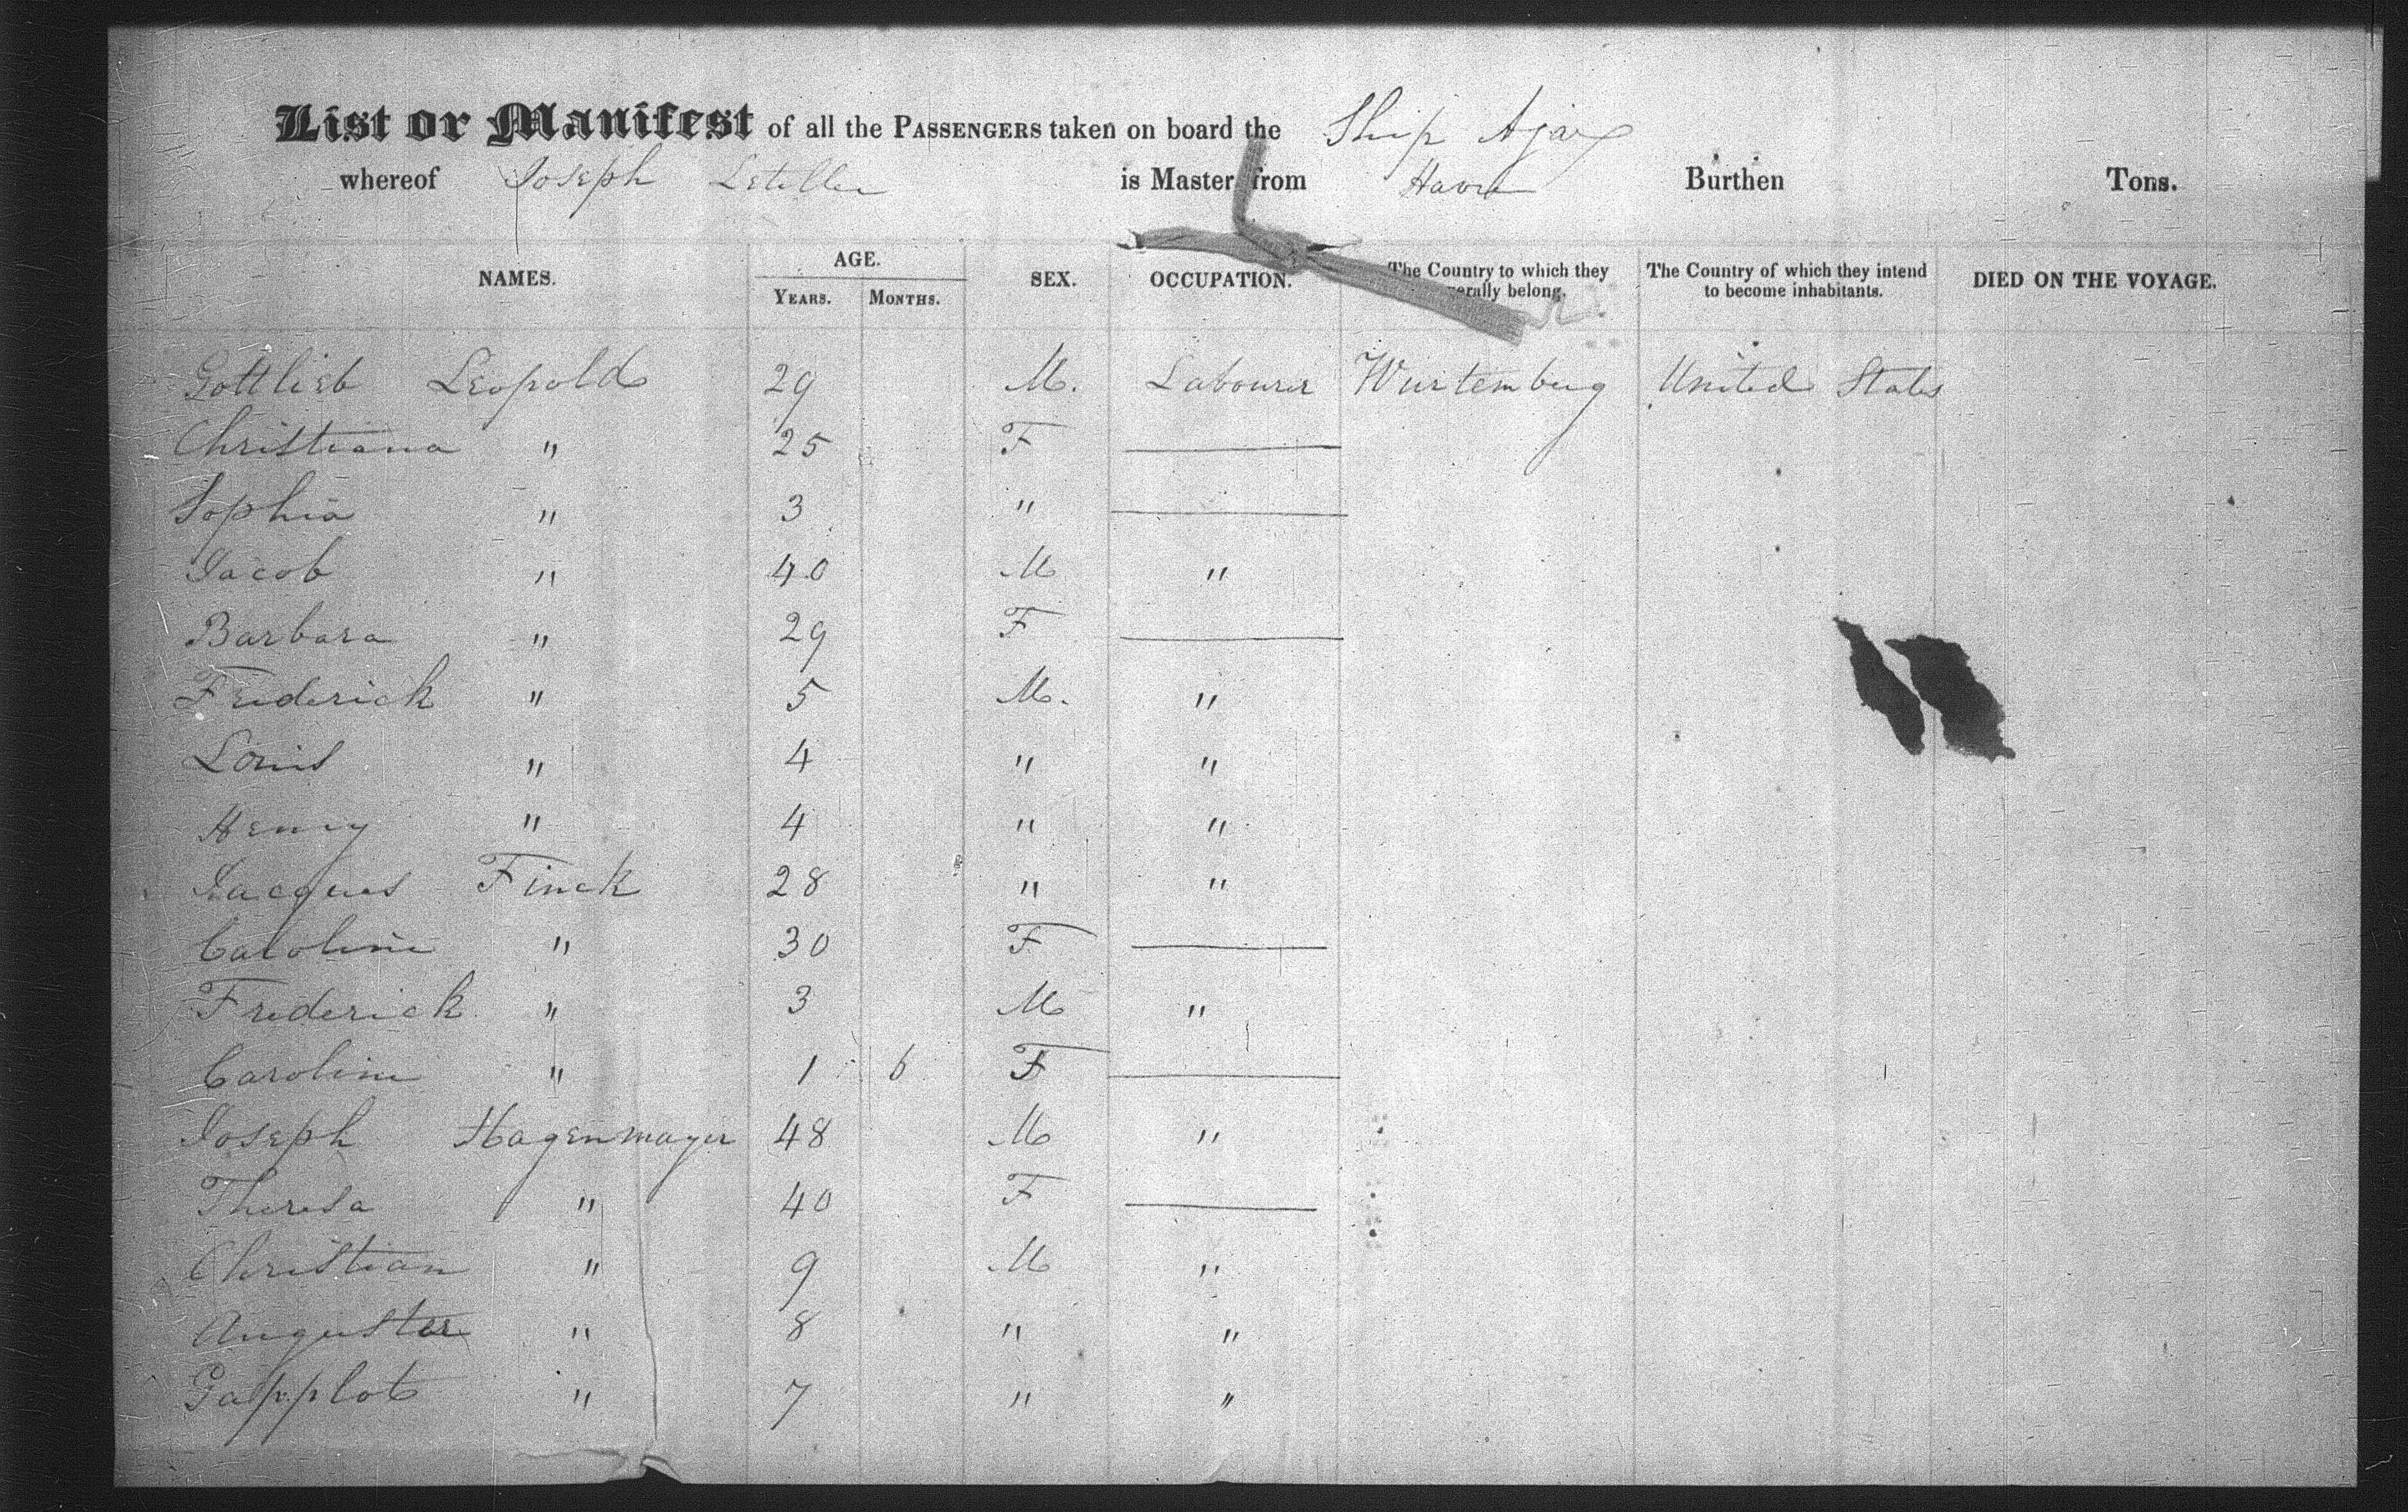 List or Manifest of all the PASSENGERS taken on board the Ship Ajax
whereof Joseph Letellier is Master, from Havre Burthen Tons.
NAMES. AGE. YEARS. MONTHS. SEX. OCCUPATION. The Country to which they erally belong. The Country of which they intend to become inhabitants. DIED ON THE VOYAGE.
Gottlieb Leopold 29 M. Labourer Wurtemburg United States
Christiana " 25 F
Sophia " 3 "
Jacob " 40 M "
Barbara " 29 F
Frederick " 5 M. "
Louis " 4 " "
Henry " 4 " "
Jacques Finck 28 " "
Caroline " 30 F
Frederick " 3 M "
Caroline " 1 6 F
Joseph Hagenmayer 48 M "
Theresa " 40 F
Christian " 9 M "
" 8 " "
" 7 " "